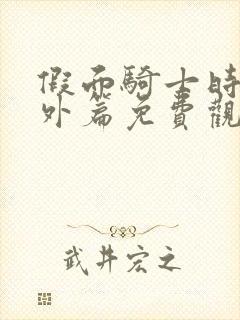 假面騎士時
外篇免費觀
武井宏之